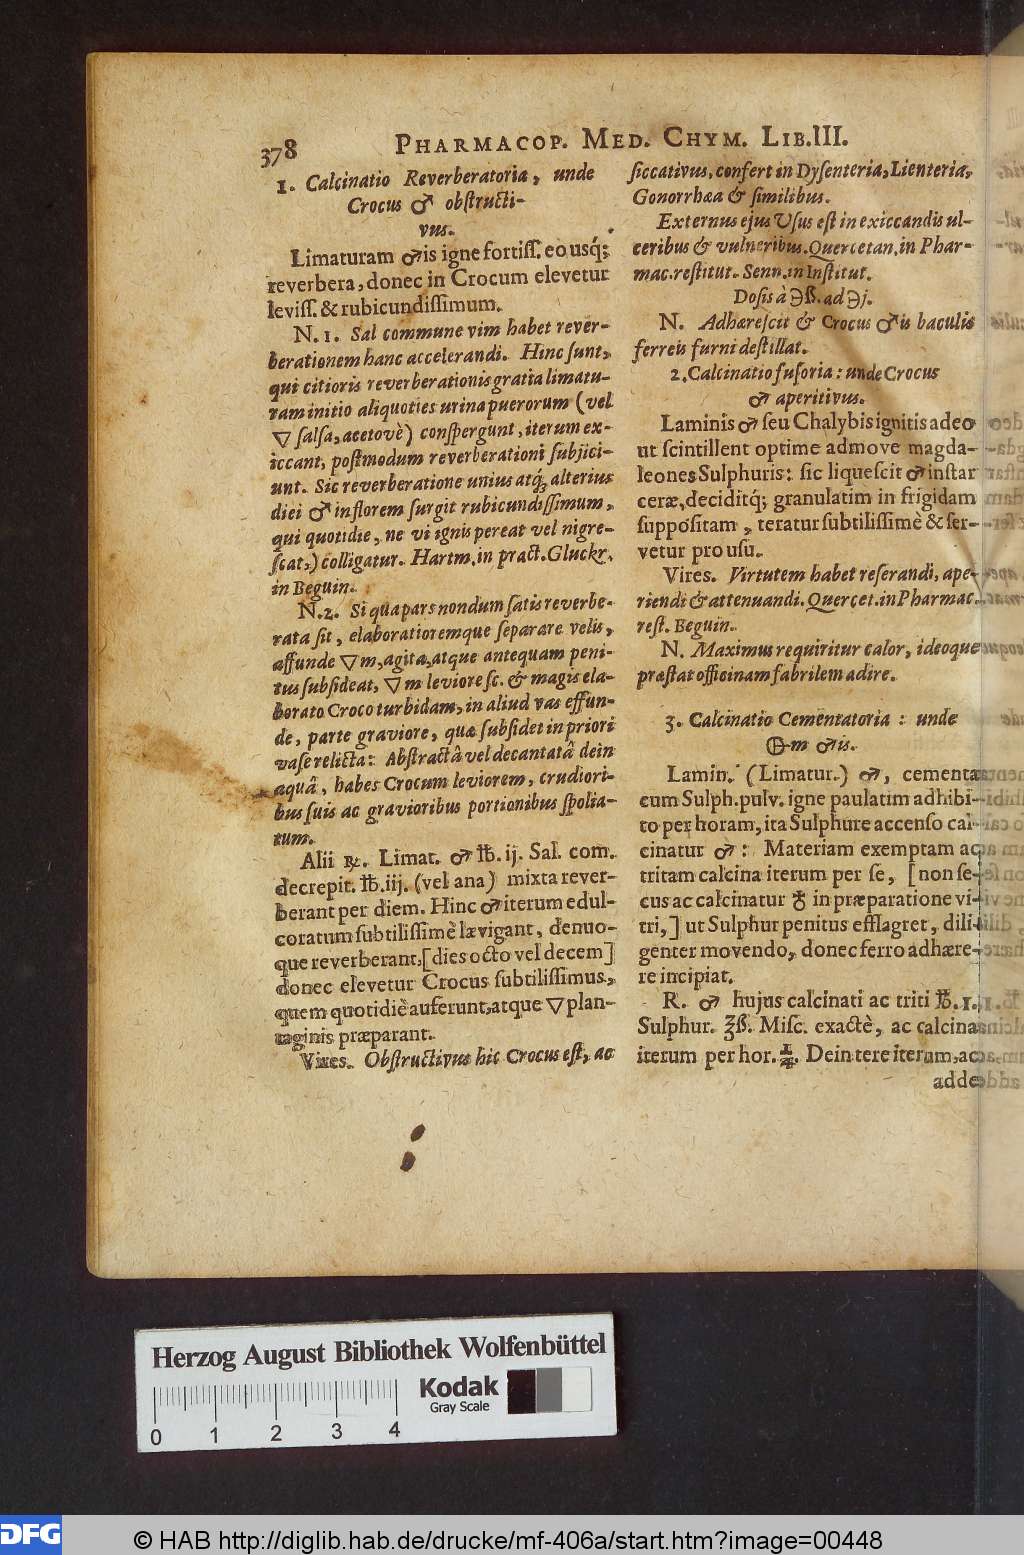 378 PHARMACOP. MED. CHYM. LIB. III.
1. Calcinatio Reverberatoria, unde
Crocus ♂ obſtructi-
vus.
Limaturam ♂is igne fortiſſ. eo usq́;
reverbera, donec in Crocum elevetur
leviſſ. & rubicundiſſimum.
N. 1. Sal commune vim habet rever-
berationem hanc accelerandi. Hinc ſunt,
qui citioris reverberationis gratia limatu-
ram initio aliquoties urina puerorum (vel
▽ ſalſa, acetovè) conſpergunt, iterum ex-
iccant, poſtmodum reverberationi ſubjici-
unt. Sic reverberatione unius atq́; alterius
diei ♂ in florem ſurgit rubicundiſſimum,
qui quotidie, ne vi ignis pereat vel nigre-
ſcat,) colligatur. Hartm. in pract. Gluckr.
in Beguin.
N. 2. Si qua pars nondum ſatis reverbe-
rata ſit, elaboratioremque ſeparare velis,
affunde ▽m, agita, atque antequam peni-
tus ſubſideat, ▽m leviore ſc. & magis ela-
borato Croco turbidam, in aliud vas effun-
de, parte graviore, quæ ſubſidet in priori
vaſe relicta: Abſtractâ vel decantatâ dein
aquâ, habes Crocum leviorem, crudiori-
bus ſuis ac gravioribus portionibus ſpolia-
tum.
Alii ℞. Limat. ♂ ℔. ij. Sal. com.
decrepit. ℔. iij. (vel ana) mixta rever-
berant per diem. Hinc ♂ iterum edul-
coratum ſubtiliſſimè lævigant, denuo-
que reverberant, [dies octo vel decem]
donec elevetur Crocus ſubtiliſſimus,
quem quotidiè auferunt, atque ▽ plan-
taginis præparant.
Vires. Obſtructivus hic Crocus eſt, ac
ſiccativus, confert in Dyſenteria, Lienteria,
Gonorrhæa & ſimilibus.
Externus ejus Uſus eſt in exiccandis ul-
ceribus & vulneribus. Quercetan. in Phar-
mac. reſtitut. Senn. in Inſtitut.
Doſis à ℈ß. ad ℈j.
N. Adhæreſcit & Crocus ♂is baculis
ferreis furni deſtillat.
2. Calcinatio fuſoria: unde Crocus
♂ aperitivus.
Laminis ♂ ſeu Chalybis ignitis adeo
ut ſcintillent optime admove magda-
leones Sulphuris: ſic liqueſcit ♂ inſtar
ceræ, deciditq́; granulatim in frigidam
ſuppoſitam, teratur ſubtiliſſimè & ſer-
vetur pro uſu.
Vires. Virtutem habet reſerandi, ape-
riendi & attenuandi. Quercet. in Pharmac.
reſt. Beguin.
N. Maximus requiritur calor, ideoque
præſtat officinam fabrilem adire.
3. Calcinatio Cementatoria: unde
🜨m ♂is.
Lamin. (Limatur.) ♂, cementa
cum Sulph. pulv. igne paulatim adhibi-
to per horam, ita Sulphure accenſo cal-
cinatur ♂: Materiam exemptam ac
tritam calcina iterum per ſe, [non ſe-
cus ac calcinatur ♁ in præparatione vi-
tri,] ut Sulphur penitus efflagret, dili-
genter movendo, donec ferro adhære-
re incipiat.
R. ♂ hujus calcinati ac triti ℔. 1.
Sulphur. ℥ß. Miſc. exactè, ac calcina
iterum per hor. Dein tere iterum, ac
adde
Herzog August Bibliothek Wolfenbüttel
0 1 2 3 4
Kodak
Gray Scale
DFG © HAB http://diglib.hab.de/drucke/mf-406a/start.htm?image=00448